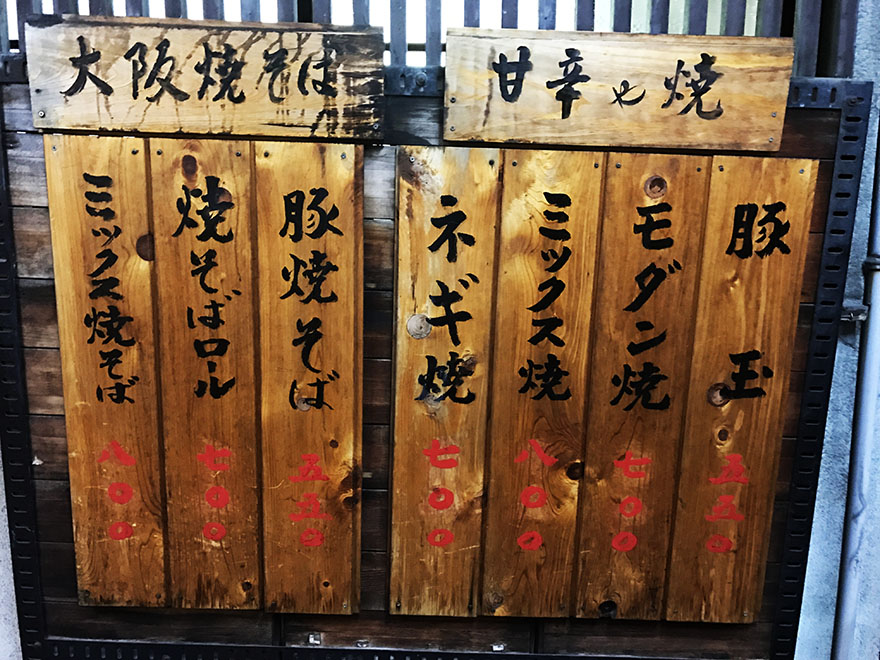 甘辛や焼
豚玉 五五〇
モダン焼 七〇〇
ミックス焼 八〇〇
ネギ焼 七〇〇
大阪焼そば
豚焼そば 五五〇
焼そばロール 七〇〇
ミックス焼そば 八〇〇